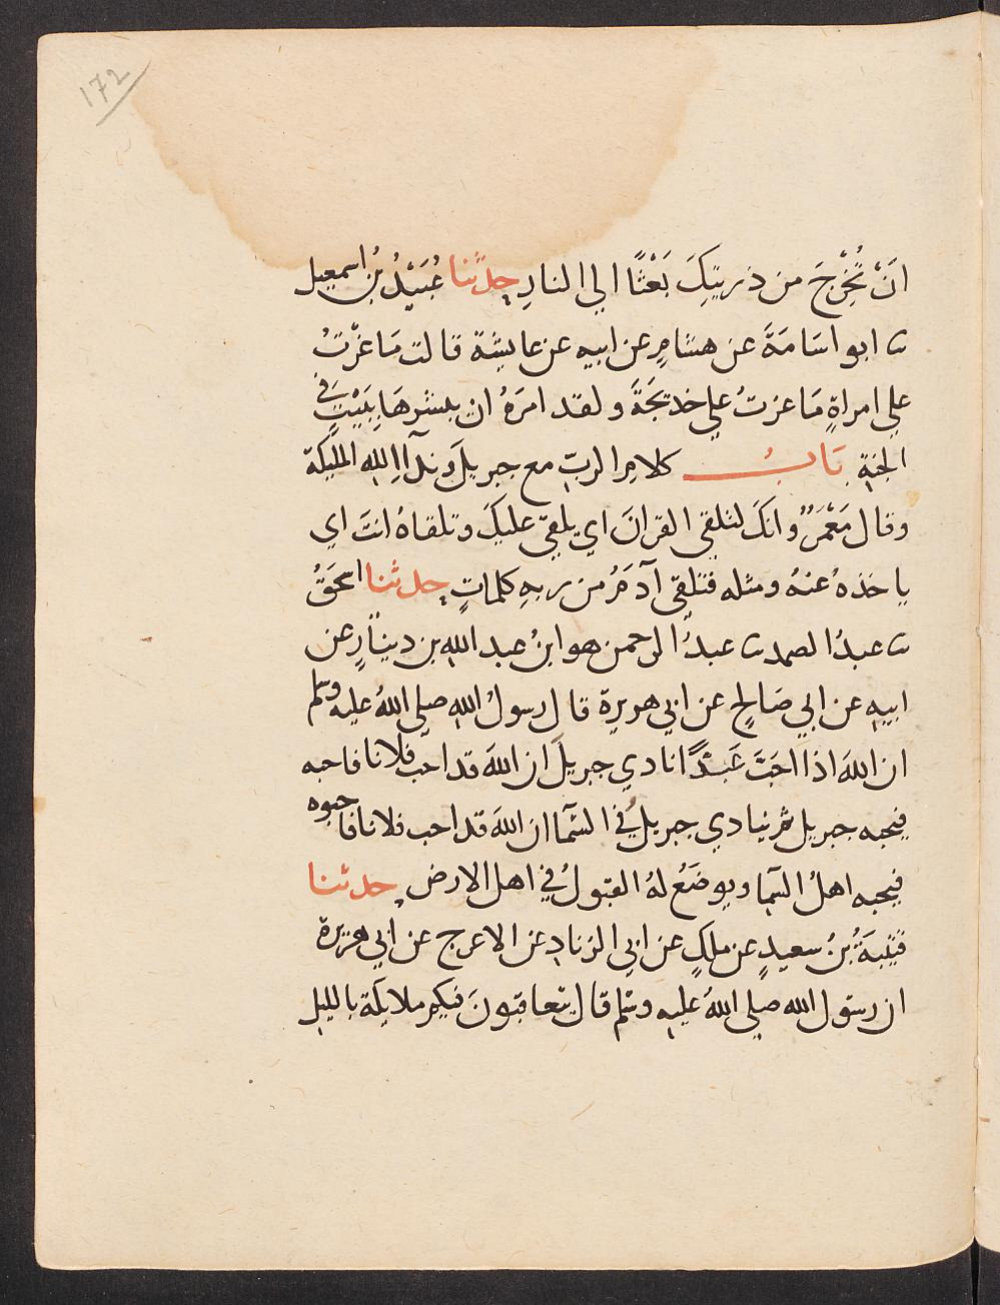 172
انْ تُخْرِجَ من ذريتِكَ بَعْثًا الي النارِ حدثنا عُبَيْدُ بنُ اسمعيل
ثنا ابو اسَامَةَ عن هشامٍ عن ابيه عن عايشة قالت مَا غرْتُ
علي امراةٍ مَا غرتُ علي خديجَةَ ولقد امرَهُ ان يبشرهَا بِبَيْتٍ في
الجنةِ بَابُ كلامِ الربِّ مع جبريلَ وندآءِ اللهِ المليكة
وقال مَعْمَرٌ وانكَ لتلقي القرانَ اي يلقي عليكَ وتلقاهُ انتَ اي
ياخذهُ عنهُ ومثله فتلقي آدمُ من ربهِ كلماتٍ حدثنا اسحقُ
ثنا عبدُ الصمد ثنا عبدُ الرحمن هو ابنُ عبد اللهِ بن دينارٍ عن
ابيهِ عن ابي صَالحٍ عن ابي هريرة قال رسولُ اللهِ صلي اللهُ عليه وسلم
ان اللهَ اذا احَبَّ عَبْدًا نادي جبريلَ ان اللهَ قد احب فلانا فاحبه
فيحبه جبريل ثم ينادي جبريلُ في السَّمآ ان اللهَ قد احب فلانا فاحبوه
فيحبه اهلُ السَّمآ ويوضَعُ لهُ القبولُ في اهل الارض حدثنا
قتيبَةُ بنُ سعيدٍ عن ملكٍ عن ابي الزنادِ عن الاعرج عن ابي هريرة
ان رسول الله صلي اللهُ عليه وسلم قال يتعاقبونَ فيكم ملايكَة بالليل